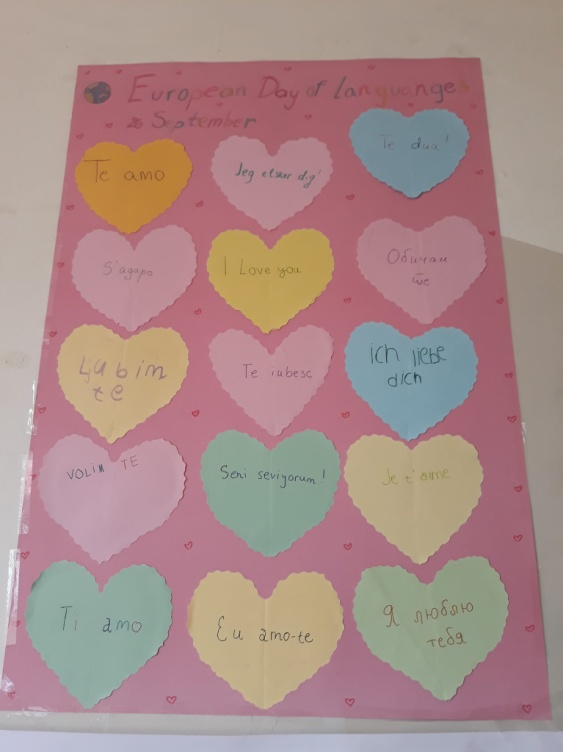 European Day of languanges
26 September
Te amo
Jeg elsker dig!
Te dua!
S'agapo
I Love you
Обичам
те
Ljubim
te
Te iubesc
ich liebe
dich
VOLIM TE
Seni seviyorum!
Je t'aime
Ti amo
Eu amo-te
Я люблю
тебя